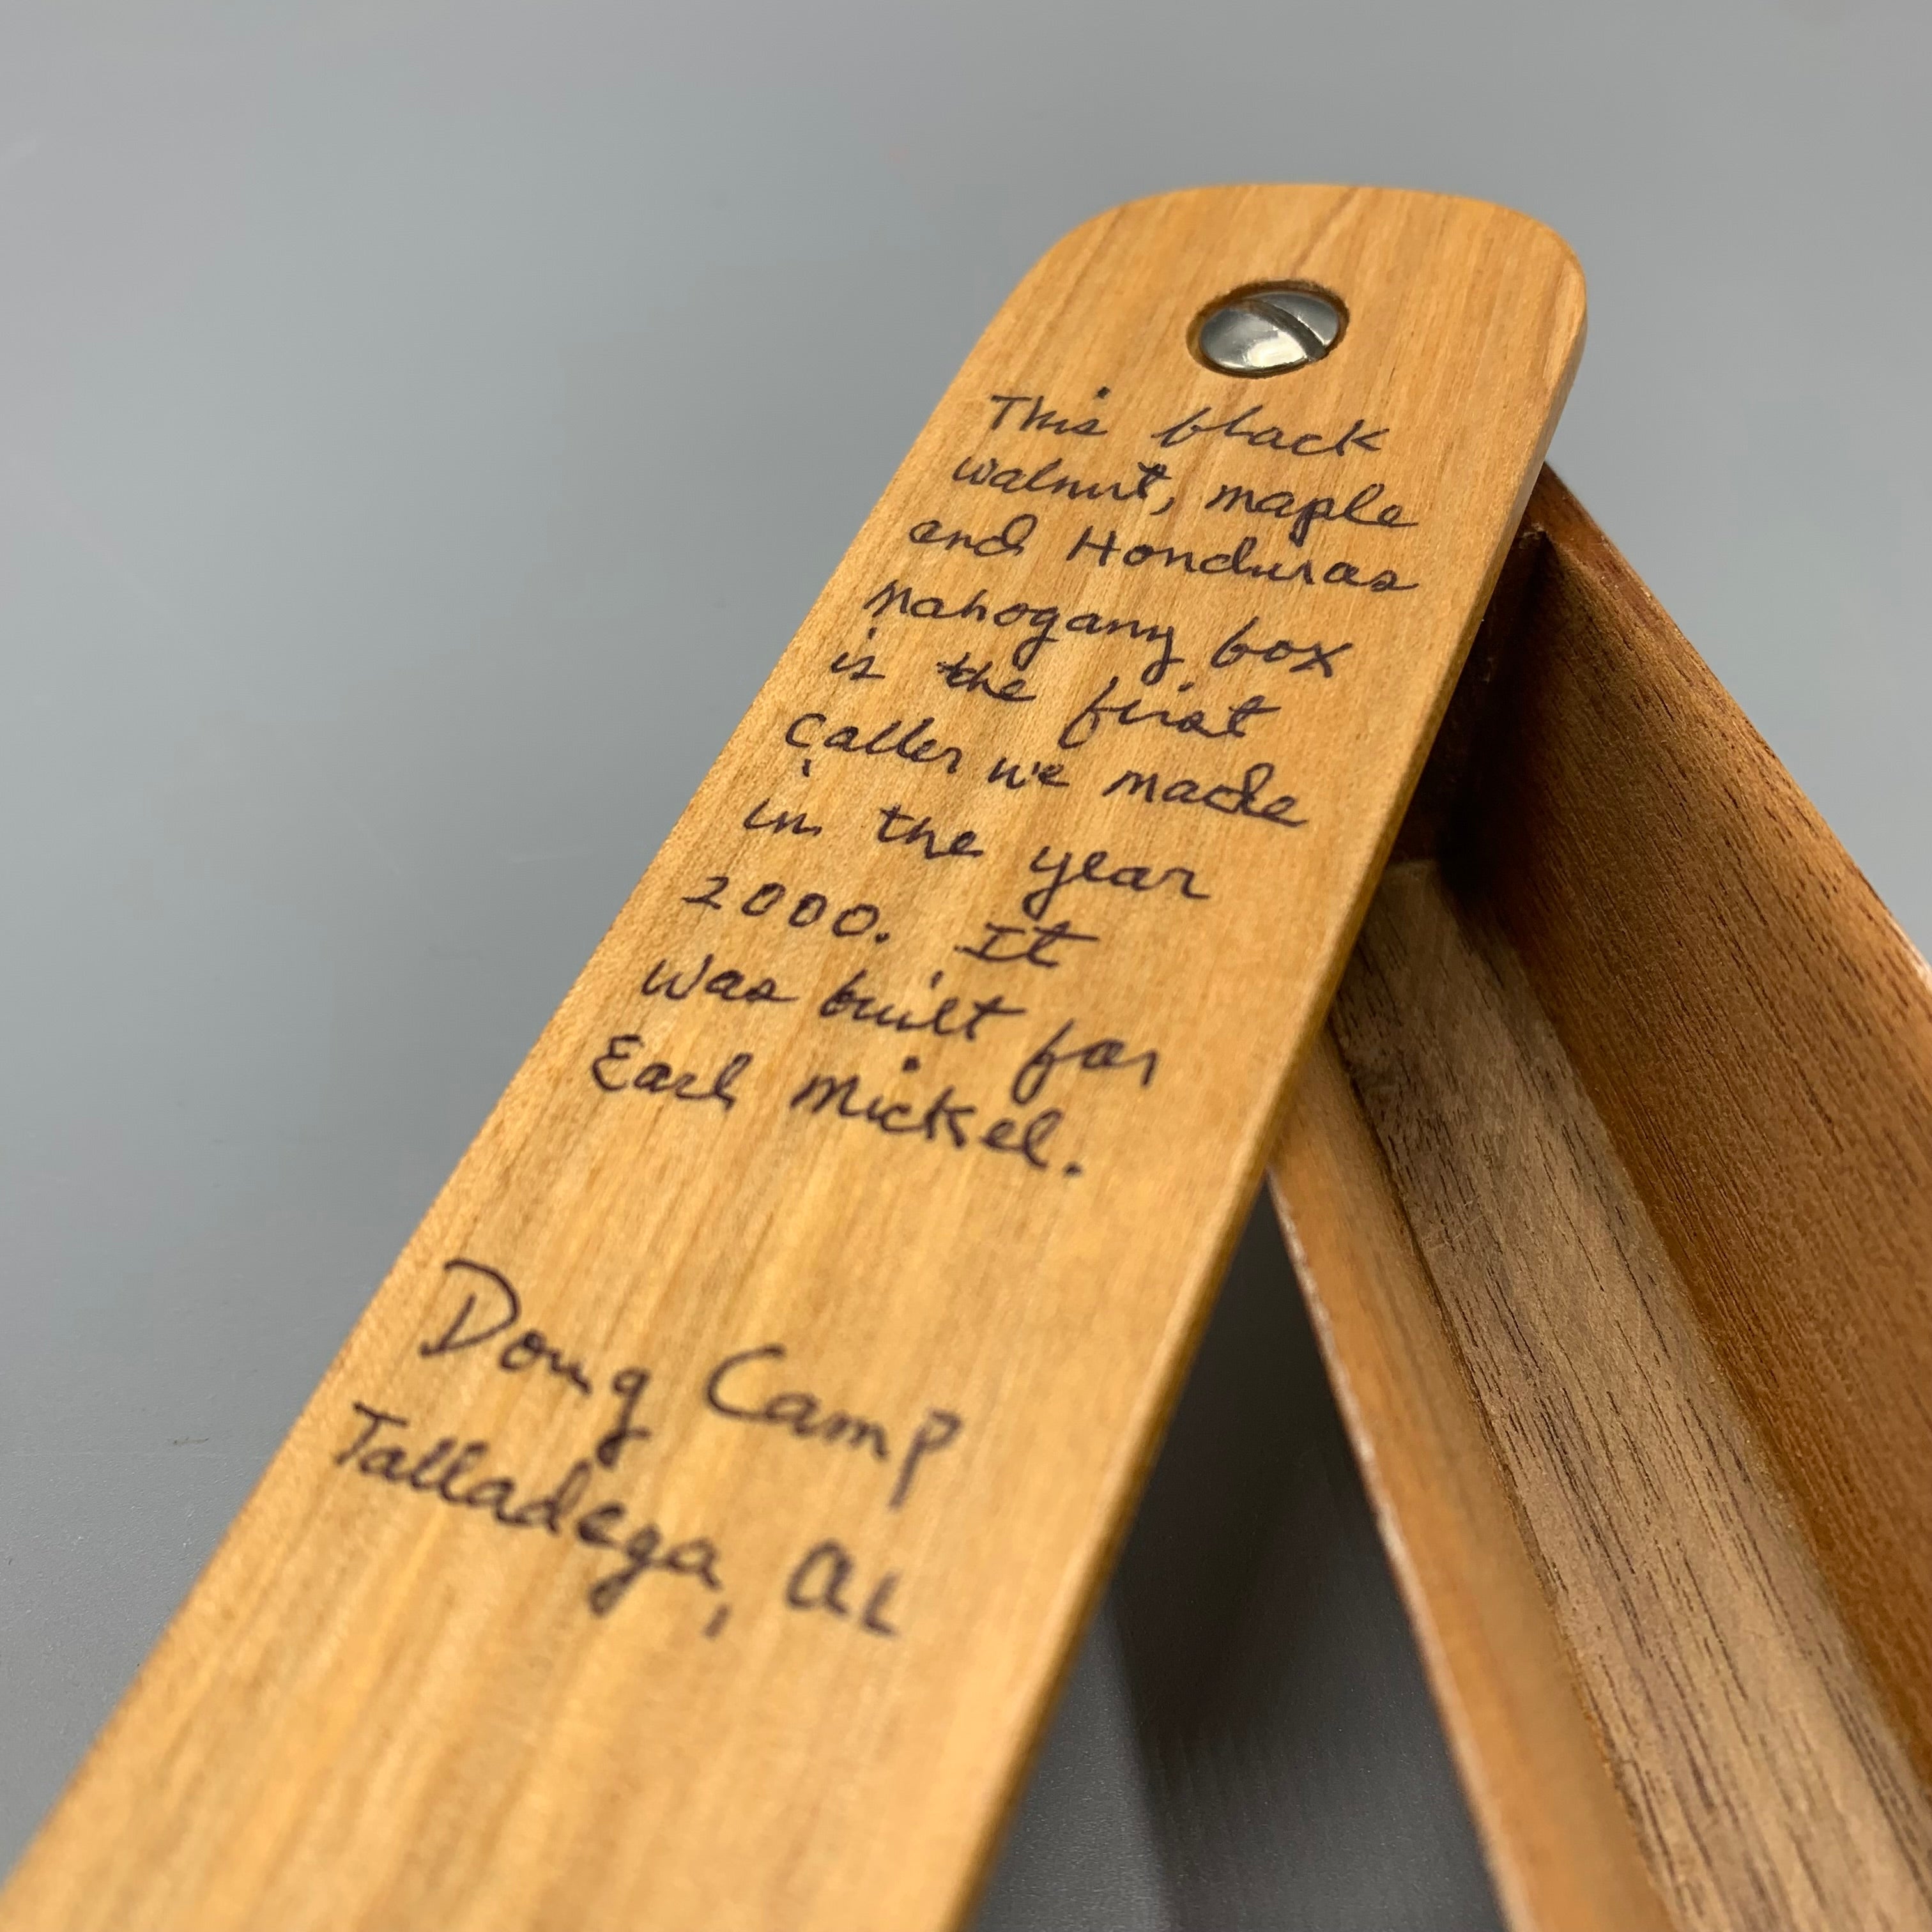 This black
walnut, maple
and Honduras
Mahogany box
is the first
Caller we made
in the year
2000. It
was built for
Earl Mickel.
Doug Camp
Talladega, AL